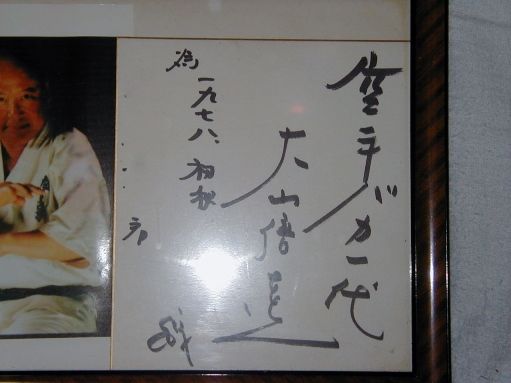 空手バカ一代
大山倍達
為
一九七八、初秋